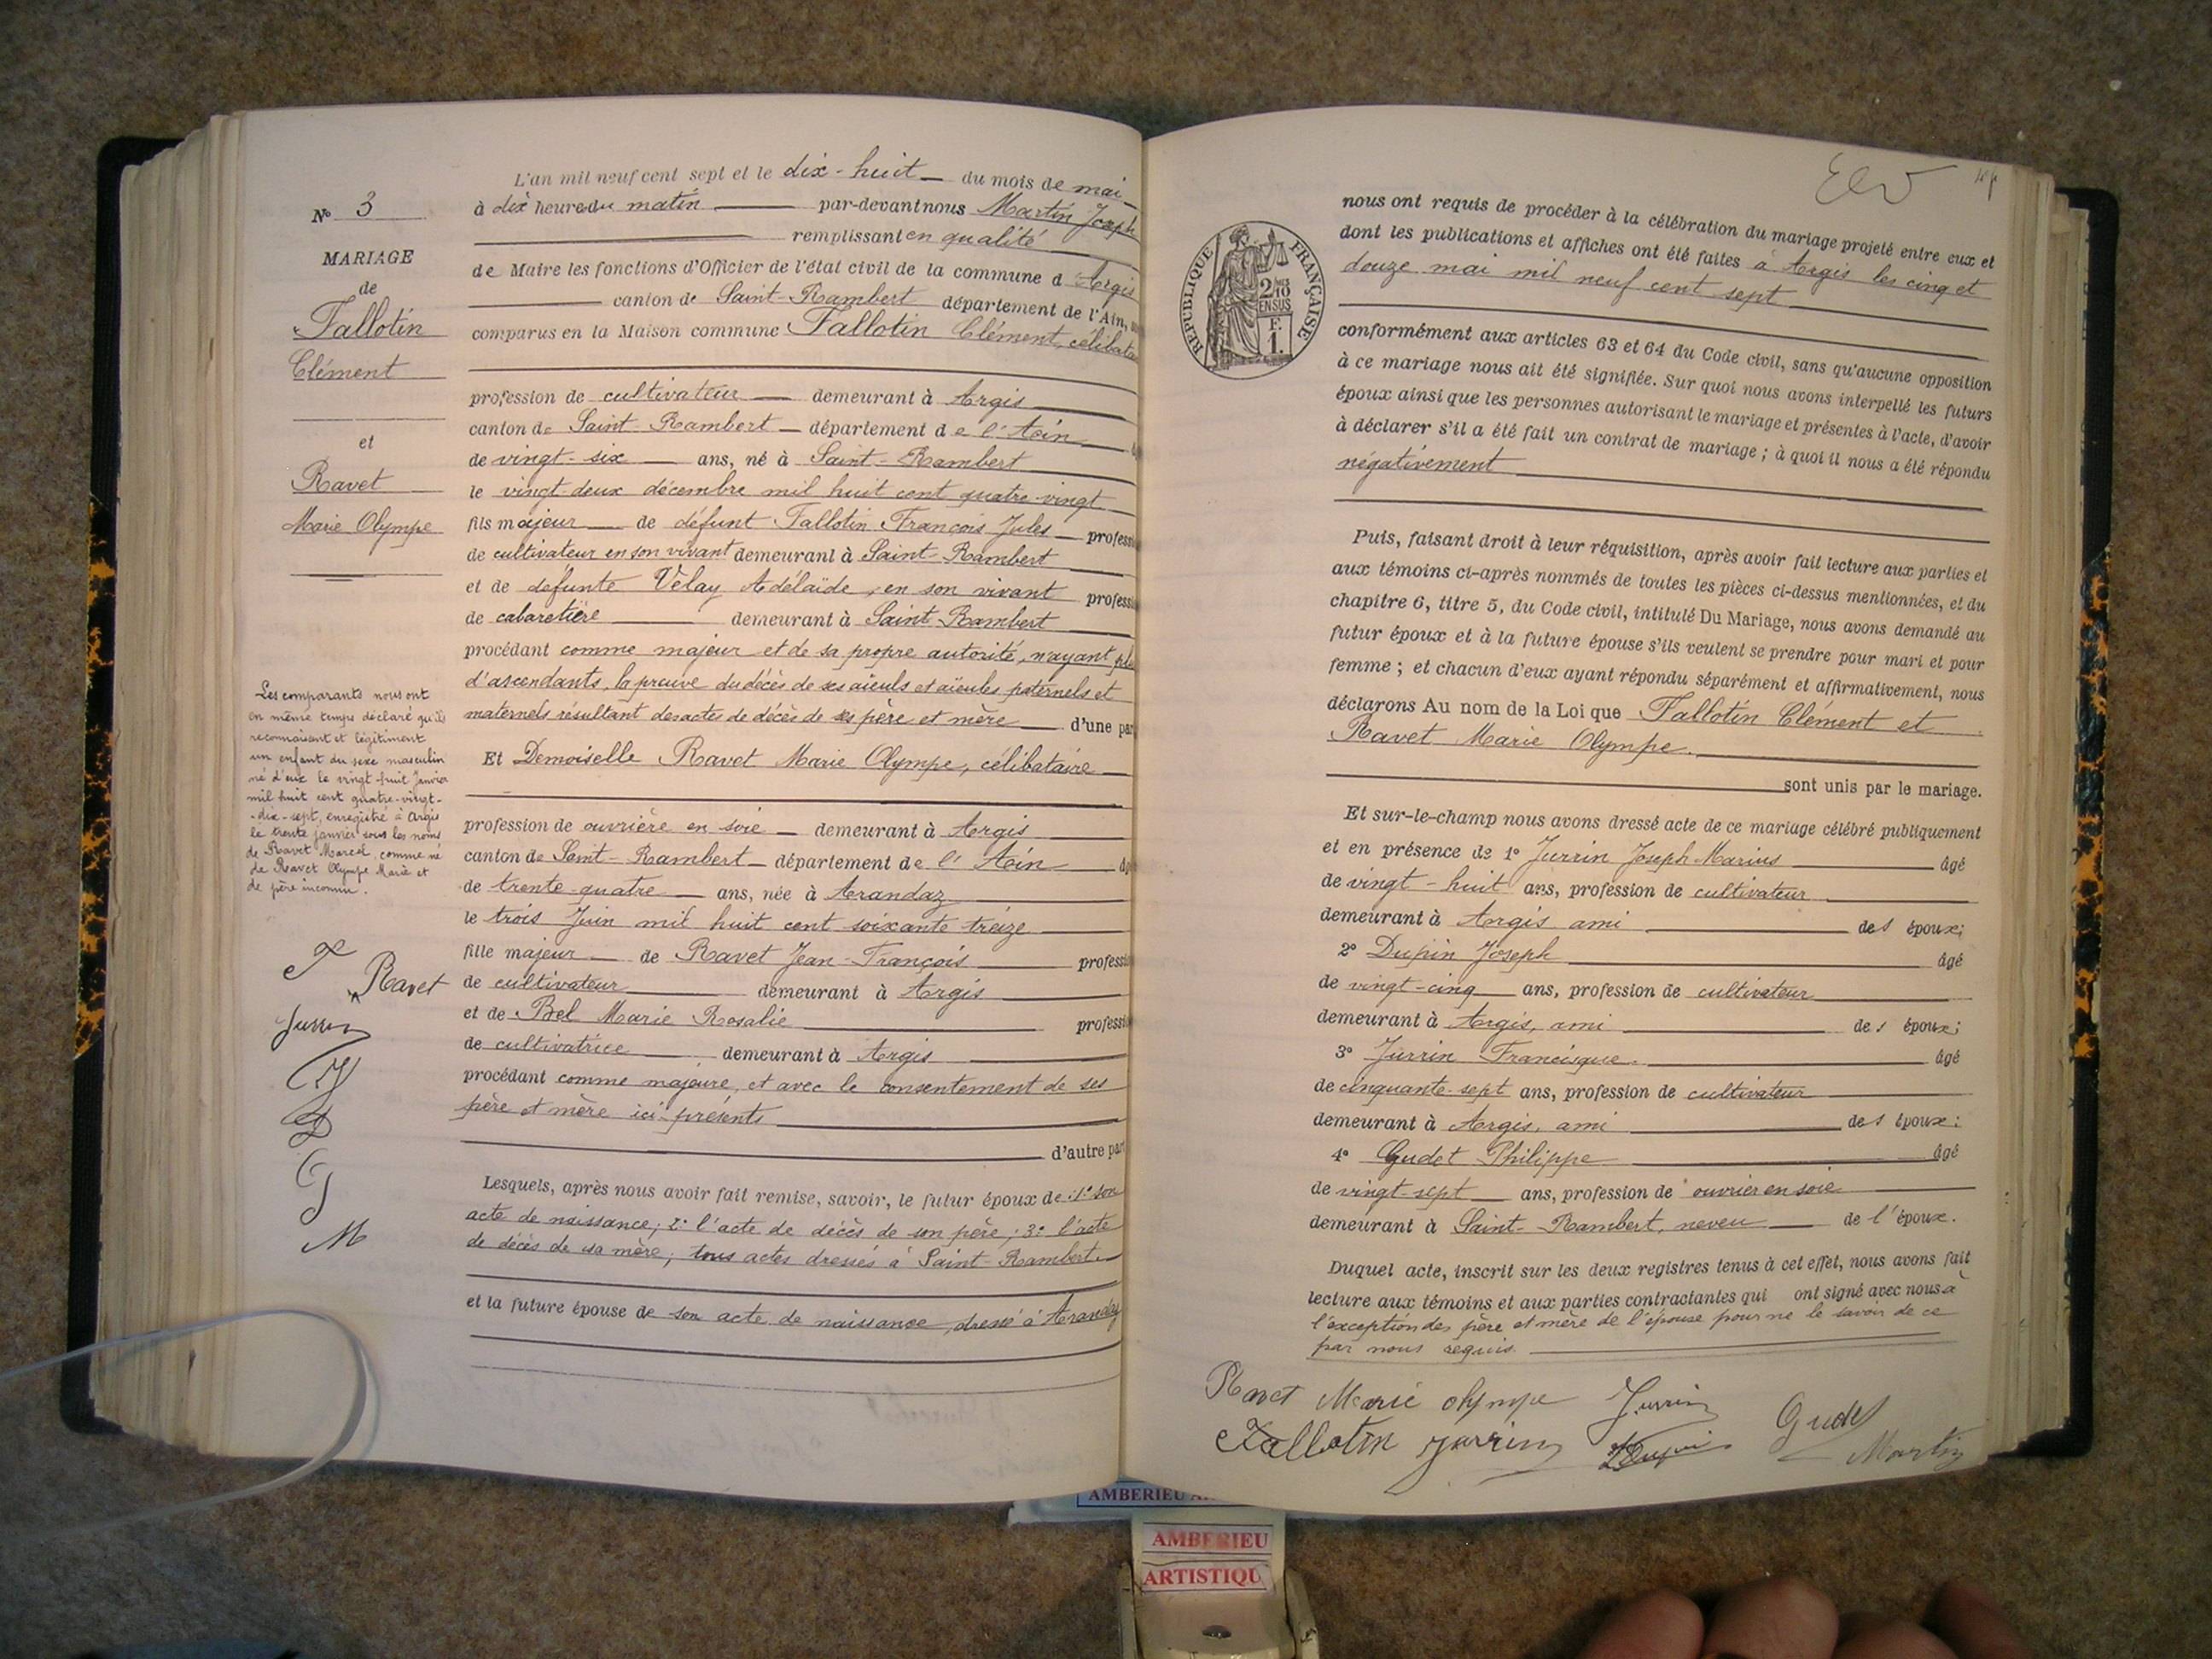 N° 3
MARIAGE
de
Fallotin
Clément
et
Ravet
Marie Olympe
Les comparants nous ont
en même temps déclaré qu'ils
reconnaissent et légitiment
un enfant du sexe masculin
né d'eux le vingt-huit Janvier
mil huit cent quatre-vingt-
-dix-sept, enregistré à Argis
le trente janvier sous les noms
de Ravet Marcel, comme né
de Ravet Olympe Marie et
de père inconnu.
F
Ravet
Jurrin
M
L'an mil neuf cent sept et le dix-huit du mois de mai
à dix heure du matin par-devant nous Martin Joseph
remplissant en qualité
de Maire les fonctions d'Officier de l'état civil de la commune d'Argis
canton de Saint-Rambert département de l'Ain,
comparus en la Maison commune Fallotin Clément, célibata
profession de cultivateur demeurant à Argis
canton de Saint-Rambert département de l'Ain
de vingt-six ans, né à Saint-Rambert
le vingt-deux décembre mil huit cent quatre-vingt
fils majeur de défunt Fallotin François Jules profess
de cultivateur en son vivant demeurant à Saint-Rambert
et de défunte Velay Adélaïde, en son vivant professi
de cabaretière demeurant à Saint-Rambert
procédant comme majeur et de sa propre autorité, n'ayant plu
d'ascendants, la preuve du décès de ses aïeuls et aïeules paternels et
maternels résultant des actes de décès de ses père et mère d'une par
Et Demoiselle Ravet Marie Olympe, célibataire
profession de ouvrière en soie demeurant à Argis
canton de Saint-Rambert département de l'Ain âg
de trente-quatre ans, née à Arandaz
le trois Juin mil huit cent soixante treize
fille majeur de Ravet Jean-François professi
de cultivateur demeurant à Argis
et de Bel Marie Rosalie professi
de cultivatrice demeurant à Argis
procédant comme majeure, et avec le consentement de ses
père et mère ici présents
d'autre par
Lesquels, après nous avoir fait remise, savoir, le futur époux de: 1° son
acte de naissance; 2° l'acte de décès de son père; 3° l'acte
de décès de sa mère, tous actes dressés à Saint-Rambert.
et la future épouse de son acte de naissance, dressé à Arandaz
REPUBLIQUE FRANÇAISE
2/10 EN SUS
F. 1.
nous ont requis de procéder à la célébration du mariage projeté entre eux et
dont les publications et affiches ont été faites à Argis les cinq et
douze mai mil neuf cent sept
conformément aux articles 63 et 64 du Code civil, sans qu'aucune opposition
à ce mariage nous ait été signifiée. Sur quoi nous avons interpellé les futurs
époux ainsi que les personnes autorisant le mariage et présentes à l'acte, d'avoir
à déclarer s'il a été fait un contrat de mariage; à quoi il nous a été répondu
négativement
Puis, faisant droit à leur réquisition, après avoir fait lecture aux parties et
aux témoins ci-après nommés de toutes les pièces ci-dessus mentionnées, et du
chapitre 6, titre 5, du Code civil, intitulé Du Mariage, nous avons demandé au
futur époux et à la future épouse s'ils veulent se prendre pour mari et pour
femme; et chacun d'eux ayant répondu séparément et affirmativement, nous
déclarons Au nom de la Loi que Fallotin Clément et
Ravet Marie Olympe
sont unis par le mariage.
Et sur-le-champ nous avons dressé acte de ce mariage célébré publiquement
et en présence de 1° Jurrin Joseph-Marius âgé
de vingt-huit ans, profession de cultivateur
demeurant à Argis ami des époux;
2° Dupin Joseph âgé
de vingt-cinq ans, profession de cultivateur
demeurant à Argis, ami des époux;
3° Jurrin Francisque âgé
de cinquante-sept ans, profession de cultivateur
demeurant à Argis, ami des époux;
4° Gudet Philippe âgé
de vingt-sept ans, profession de ouvrier en soie
demeurant à Saint-Rambert, neveu de l'époux.
Duquel acte, inscrit sur les deux registres tenus à cet effet, nous avons fait
lecture aux témoins et aux parties contractantes qui ont signé avec nous à
l'exception des père et mère de l'épouse pour ne le savoir de ce
par nous requis.
Ravet Marie olympe Jurrin Gudet
Fallotin Jurrin Dupin Martin
AMBERIEU
AMBERIEU
ARTISTIQU